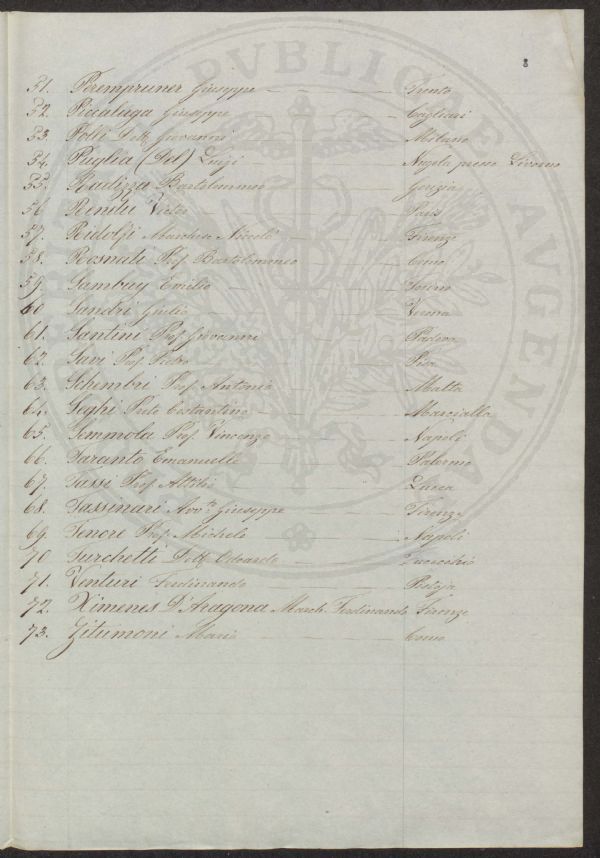 PVBLICAE
AVGENDAE
51. Perempruner Giuseppe Trento
52. Piccaluga Giuseppe Cagliari
53. Polli Dott. Giovanni Milano
54. Puglia (Del) Luigi presso Livorno
55. Radizza Bartolommeo Gorizia
56. Victor Paris
57. Ridolfi Marchese Niccolò Firenze
58. Rosnati Prof. Bartolommeo Como
59. Sambuy Emilio Torino
60. Sandri Giulio Verona
61. Santini Prof. Giovanni Padova
62. Savi Prof. Pietro Pisa
63. Schembri Prof. Antonio Malta
64. Seghi Costantino Marcialla
65. Semmola Prof. Vincenzo Napoli
66. Taranto Emanuelle Palermo
67. Tassi Prof. Attilio Lucca
68. Tassinari Avv. Giuseppe Firenze
69. Tenore Prof. Michele Napoli
70. Turchetti Dott. Odoardo Fucecchio
71. Venturi Ferdinando Pistoja
72. Ximenes D'Aragona March. Ferdinando Firenze
73. Zitumoni Mario Como